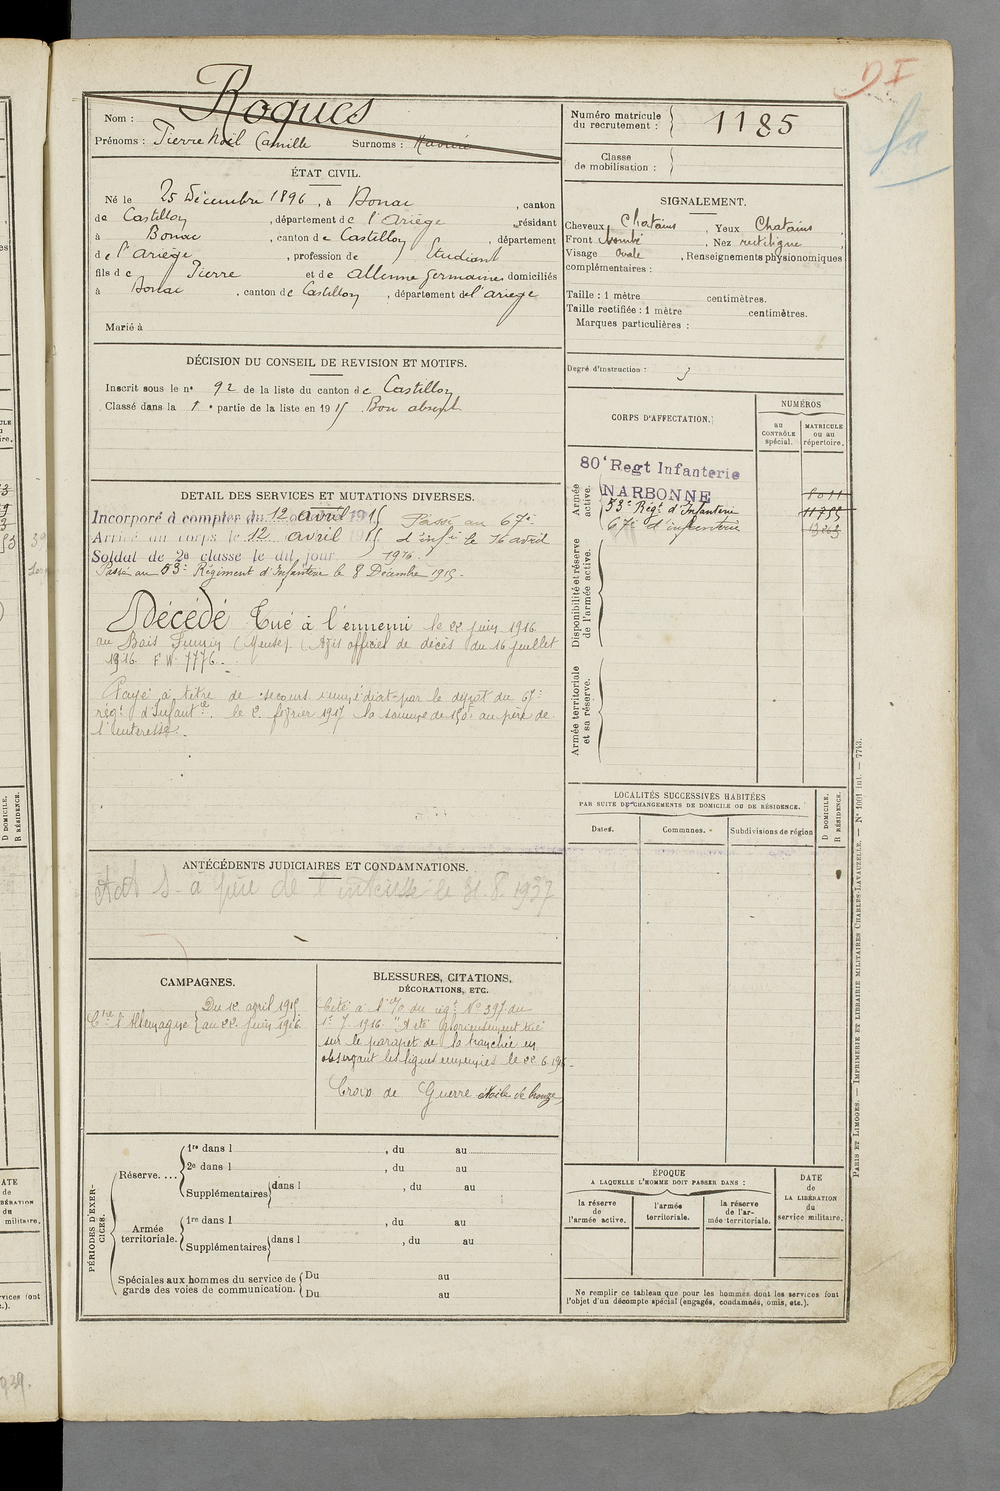 D I
Nom : Roques
Prénoms : Pierre Noël Camille Surnoms :
Numéro matricule
du recrutement : 1185
Classe
de mobilisation :
ÉTAT CIVIL.
Né le 25 Décembre 1896, à Bonac, canton
de Castillon, département de l'Ariège, résidant
à Bonac, canton de Castillon, département
de l'ariège, profession de Etudiant
fils de Pierre et de Allenne Germaine domiciliés
à Bonac, canton de Castillon, département de l'ariège
Marié à
SIGNALEMENT.
Cheveux Chatains, Yeux Chatains,
Front bombé, Nez rectiligne,
Visage ovale, Renseignements physionomiques
complémentaires :
Taille : 1 mètre centimètres.
Taille rectifiée : 1 mètre centimètres.
Marques particulières :
Degré d'instruction : 3
DÉCISION DU CONSEIL DE REVISION ET MOTIFS.
Inscrit sous le n° 92 de la liste du canton de Castillon
Classé dans la 1e partie de la liste en 1915. Bon absent
CORPS D'AFFECTATION.
NUMÉROS
au
CONTRÔLE
spécial.
MATRICULE
ou au
répertoire.
Armée
active.
80e Regt Infanterie
NARBONNE
53e Régt d'Infanterie
67e d'infanterie
Disponibilité et réserve
de l'armée active.
Armée territoriale
et sa réserve.
DETAIL DES SERVICES ET MUTATIONS DIVERSES.
Incorporé à compter du 12 avril 1915
Arrivé au corps le 12 avril 1915
Soldat de 2e classe le dit jour
Passé au 67e
d'infie le 16 avril
1916.
Passé au 53e Régiment d'Infanterie le 8 Décembre 1915.
Décédé Tué à l'ennemi le 22 juin 1916
au Bois Fumin (Meuse). (Avis officiel de décès du 16 juillet
1916 F W 7776.
Payé à titre de secours immédiat par le dépôt du 67e
régt d'Infantie le 2 février 1917 la somme de 150f au père de
l'intéressé.
LOCALITÉS SUCCESSIVES HABITÉES
PAR SUITE DE CHANGEMENTS DE DOMICILE OU DE RÉSIDENCE.
Dates.
Communes.
Subdivisions de région
D DOMICILE.
R RÉSIDENCE.
ANTÉCÉDENTS JUDICIAIRES ET CONDAMNATIONS.
père de l'intéressé le 31.8.1937
CAMPAGNES.
Ctre l'Allemagne
Du 12 avril 1915
au 22 juin 1916
BLESSURES, CITATIONS,
DÉCORATIONS, ETC.
Cité à l'o/ du régt No 397 du
1er 7. 1916 "A été glorieusement tué
sur le parapet de la tranchée en
observant les lignes ennemies le 22 6 1916
Croix de Guerre étoile de bronze
PÉRIODES D'EXERCICES.
Réserve....
1re dans l , du au
2e dans l , du au
Supplémentaires dans l , du au
Armée
territoriale.
1re dans l , du au
Supplémentaires dans l , du au
Spéciales aux hommes du service de
garde des voies de communication.
Du au
Du au
ÉPOQUE
A LAQUELLE L'HOMME DOIT PASSER DANS :
la réserve
de
l'armée active.
l'armée
territoriale.
la réserve
de l'ar-
mée territoriale.
DATE
de
LA LIBÉRATION
du
service militaire.
Ne remplir ce tableau que pour les hommes dont les services font
l'objet d'un décompte spécial (engagés, condamnés, omis, etc.).
PARIS ET LIMOGES. — IMPRIMERIE ET LIBRAIRIE MILITAIRES CHARLES-LAVAUZELLE. — N° 1001 int. — 7743.